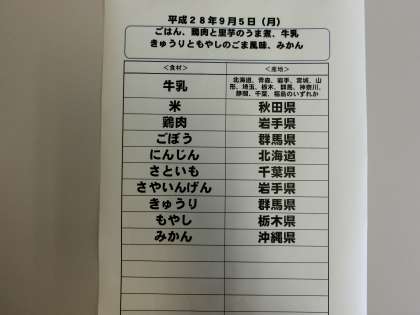 平成28年9月5日(月)
ごはん、鶏肉と里芋のうま煮、牛乳
きゅうりともやしのごま風味、みかん
<食材> <産地>
牛乳 北海道、青森、岩手、宮城、山
形、埼玉、栃木、群馬、神奈川、
静岡、千葉、福島のいずれか
米 秋田県
鶏肉 岩手県
ごぼう 群馬県
にんじん 北海道
さといも 千葉県
さやいんげん 岩手県
きゅうり 群馬県
もやし 栃木県
みかん 沖縄県